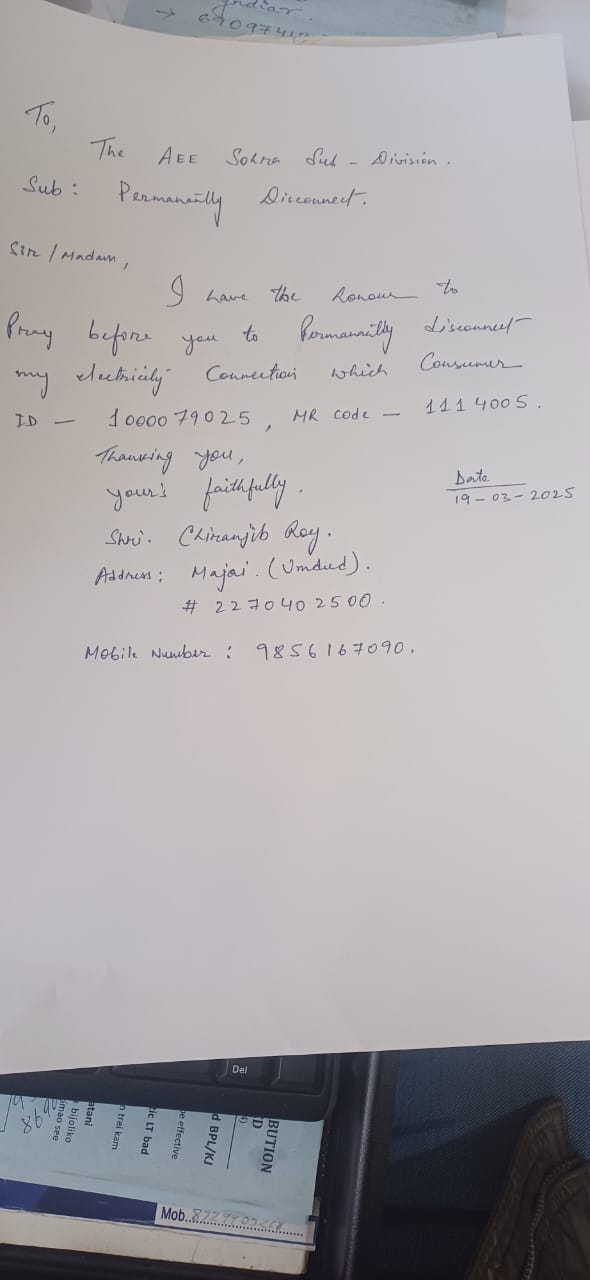 To,
The AEE Sohra Sub - Division.
Sub : Permanantly Disconnect.
Sir / Madam,
I have the honour to
Pray before you to Permanantly disconnect
my electricity Connection which Consumer
ID - 1000079025, MR code - 1114005.
Thanking you,
your's faithfully.
Date
19-03-2025
Shri. Chiranjib Roy.
Address : Majai. (Umdud).
# 2270402500.
Mobile Number : 9856167090.
Del
BUTION
D
d BPL/KJ
be effective
ic LT bad
n trei kam
atani
bijoliko
imao see
Mob.